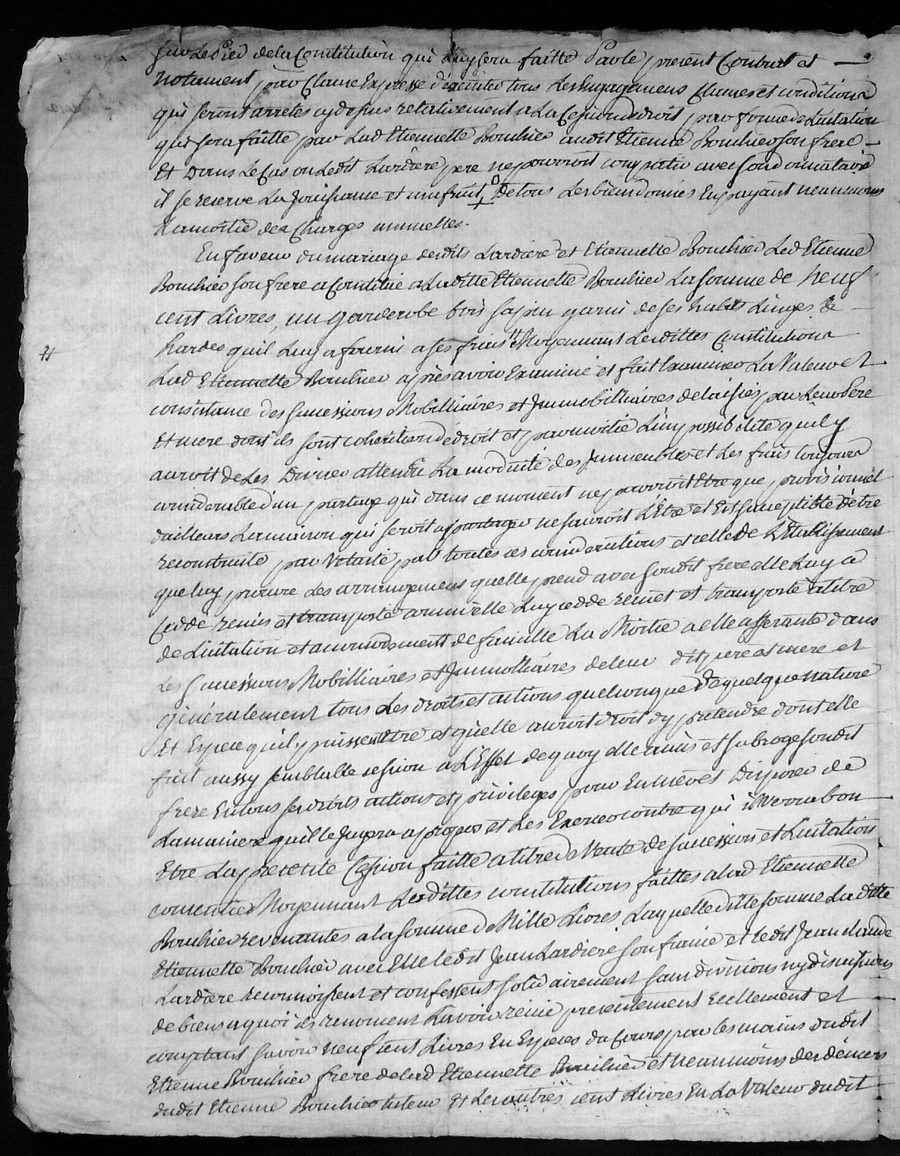 sur Le Pied de la Constitution qui Luy sera faitte Par le present Contract et
notament par Clause Expresse d'executer tous Les Engagemens Clauses et conditions
qui seront arretes cy dessus relativement a La Cession de droit par forme de Licitation
qui sera faitte par Lad Etiennette Bouchier audit Etienne Bouchier son frere.
Et Dans Le Cas ou Ledit Lardiere pere ne pourroit compatir avec son donnataire
il se reserve La Jouissance et usufruit de tous Les biens donnes En payant neanmoins
La moitié des Charges annuelles.
En faveur du mariage desdits Lardiere et Etiennette Bouchier Led Etienne
Bouchier son frere a Constitué a Laditte Etiennette Bouchier La somme de Neuf
cent Livres, un garderobe bois sapin garni de ses habits Linges &
hardes quil Luy a fourni a ses frais Moyennant Lesdittes Constitutions
Lad Etiennette Bouchier apres avoir Examiné et fait Examiner La Valeur et
consistance des successions Mobilliaires et Immobilliaires delaissées par Leurs Pere
Et mere dont ils sont coheritiers de droit et par moitié L'impossibilité quil y
auroit de Les Diviser attendu La modicité des Immeubles et Les frais toujours
considerables d'un partage qui dans ce moment ne pourroit Etre que provisionnel
dailleurs La maison qui seroit a partager ne sauroit L'Etre et Est susceptible d'etre
reconstruite par Vetusté par toutes ces considerations et celle de L'Etablissement
que luy procure des arrangemens quelle prend avec sondit frere elle Luy a
Cedde remis et transporté comme elle Luy cedde remet et transporte a titre
de Licitation et accommodement de famille La Moitié a elle afferante dans
Les successions Mobilliaires et Immobilliaires de leur dit pere et mere et
Generalement tous Les droits et actions quelconque De quelque nature
Et Espece quil y puissent Etre et quelle auroit droit d'y pretendre dont elle
fait aussy semblable cession a L'Effet de quoy elle a mis et subroge sondit
frere En tous ses droits actions et privileges pour En user et Disposer de
La maniere quil le Jugera a propos et Les Exercer contre qui il Verra bon
Etre La presente Cession faitte a titre de Vente de succession et Licitation
consentie Moyennant Lesdittes constitutions faittes a lad Etiennette
Bouchier revenantes a la somme de Mille Livres, Laquelle ditte somme Laditte
Etiennette Bouchier avec Elle ledit Jean Lardiere son fiancé et ledit Jean Claude
Lardiere reconnoissent et confessent solidairement sans divisions ny discussions
de biens a quoi ils renoncent L'avoir reçue presentement reellement et
comptant savoir neuf cent Livres En Especes du Cours par les mains dudit
Etienne Bouchier frere de lad Etiennette Bouchier et neanmoins des deniers
dudit Etienne Bouchier tuteur & Les autres cent Livres En La Valeur dudit